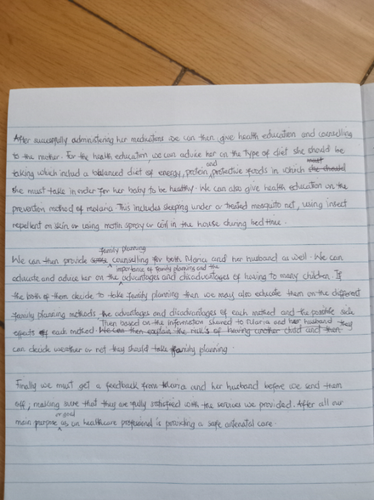 After successfully administering her medications we can then give health education and counselling
to the mother. For the health education, we can advice her on the type of diet she should be
taking which includ a balanced diet of energy, protein and protective foods in which
she must take in order for her baby to be healthy. We can also give health education on the
prevention method of malaria. This includes sleeping under a treated mosquito net, using insect
repellent on skin or using mosh spray or coil in the house during bed time.
We can then provide family planning counselling for both Maria and her husband as well. We can
educate and advice her on the importance of family planning and the advantages and disadvantages of having to many children. If
the both of them decide to take family planning then we may also educate them on the different
family planning methods the advantages and disadvantages of each method and the possible side
effects of each method. Then based on the information shared to Maria and her husband they
can decide weather or not they should take family planning.
Finally we must get a feedback from Maria and her husband before we send them
off, making sure that they are fully satisfied with the services we provided. After all our
main purpose or goal as an healthcare professional is providing a safe antenatal care.